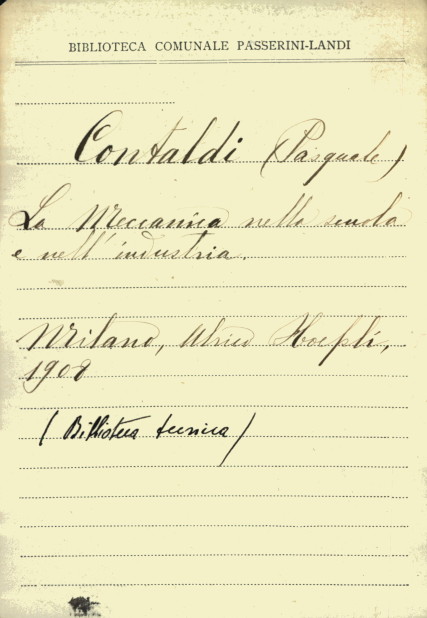 BIBLIOTECA COMUNALE PASSERINI-LANDI
Contaldi (Pasquale)
La Meccanica nella scuola
e nell'industria.
Milano, Ulrico Hoepli,
1908
(Biblioteca tecnica)